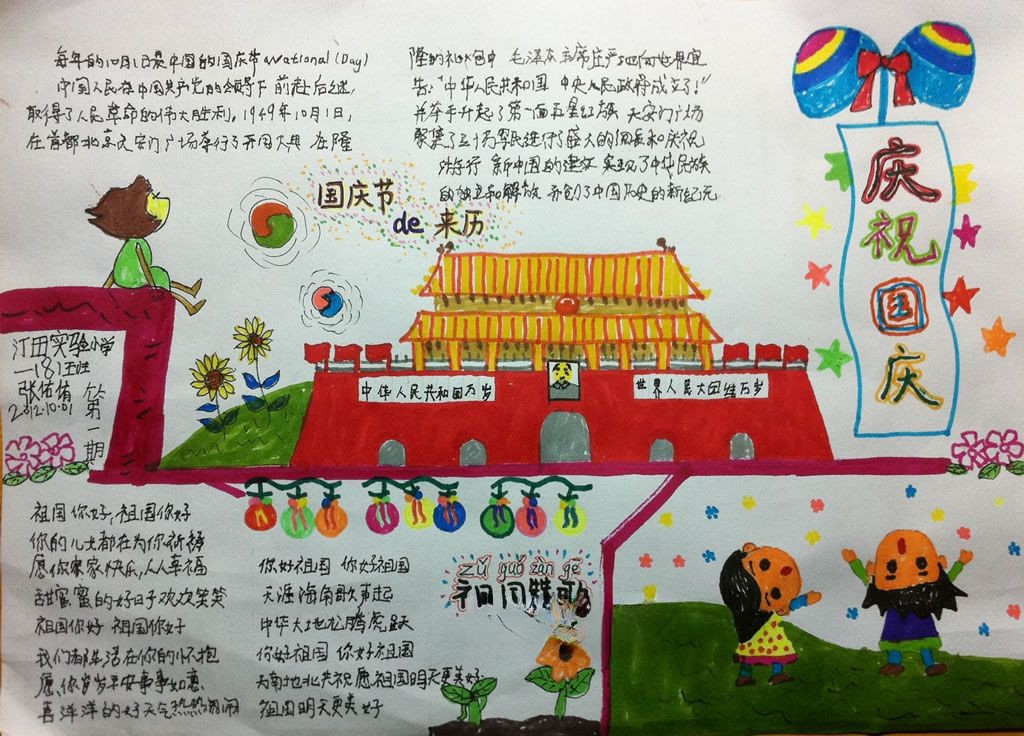 每年的10月1日是中国的国庆节(National Day)
中国人民在中国共产党的领导下前赴后继,
取得了人民革命的伟大胜利。1949年10月1日,
在首都北京天安门广场举行了开国大典 在隆
隆的礼炮中 毛泽东主席庄严地向世界宣
告:"中华人民共和国 中央人民政府成立了!"
并亲手升起了第一面五星红旗 天安门广场
聚集了三十万军民进行了盛大的阅兵和庆祝
游行 新中国的建立 实现了中华民族
的独立和解放 开创了中国历史的新纪元
国庆节
de 来历
庆祝国庆
汀田实验小学
一(8)班
张佑倩
2012.10.01
第一期
中华人民共和国万岁
世界人民大团结万岁
祖国你好,祖国你好
你的儿女都在为你祈祷
愿你家家快乐,人人幸福
甜蜜蜜的好日子欢欢笑笑
祖国你好 祖国你好
我们都生活在你的怀抱
愿你岁岁平安事事如意
喜洋洋的好天气热热闹闹
zǔ guó zàn gē
祖国赞歌
你好祖国 你好祖国
天涯海角歌声起
中华大地龙腾虎跃
你好祖国 你好祖国
天南地北共祝愿祖国明天更美好
祖国明天更美好